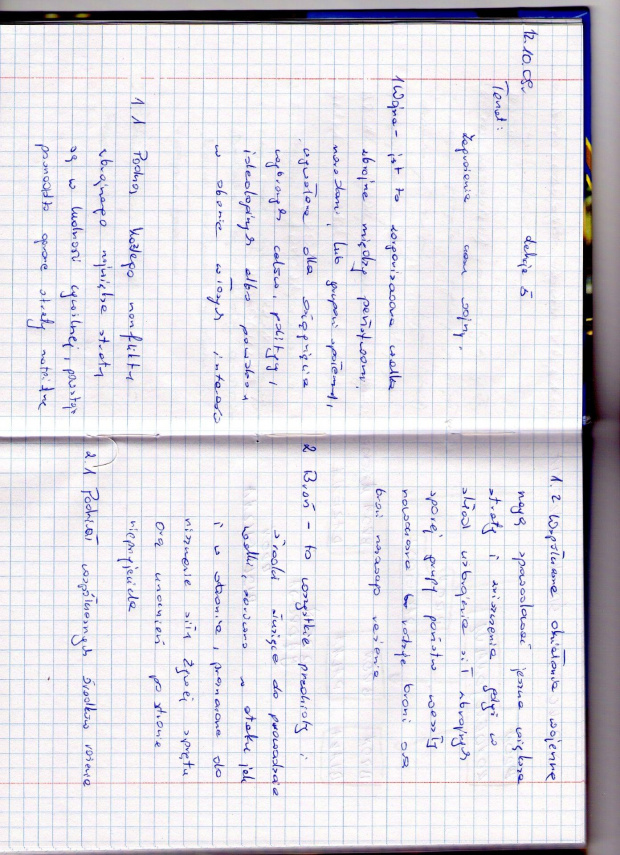 12.10.09r.
Lekcja 5
Temat:
Zagrożenia czasu wojny.
1 Wojna - jest to zorganizowana walka
zbrojna między państwami,
narodami, lub grupami społecznymi,
wywołana dla osiągnięcia
wybranych celów, politycznych,
ideologicznych albo
w obronie własnych interesów
1.1 Podczas każdego konfliktu
zbrojnego największe straty
są w ludności cywilnej, powstają
ponadto ogromne straty materialne
1.2 Współczesne działania wojenne
mogą spowodować jeszcze większe
straty i zniszczenia gdyż w
skład uzbrojenia sił zbrojnych
sporej grupy państw weszły
nowoczesne rodzaje broni oraz
broń masowego rażenia
2 Broń - to wszystkie przedmioty i
środki służące do prowadzenia
walki, zarówno w ataku jak
i w obronie, przeznaczone do
niszczenia siły żywej, sprzętu
oraz umocnień po stronie
nieprzyjaciela
2.1 Podział współczesnych środków rażenia